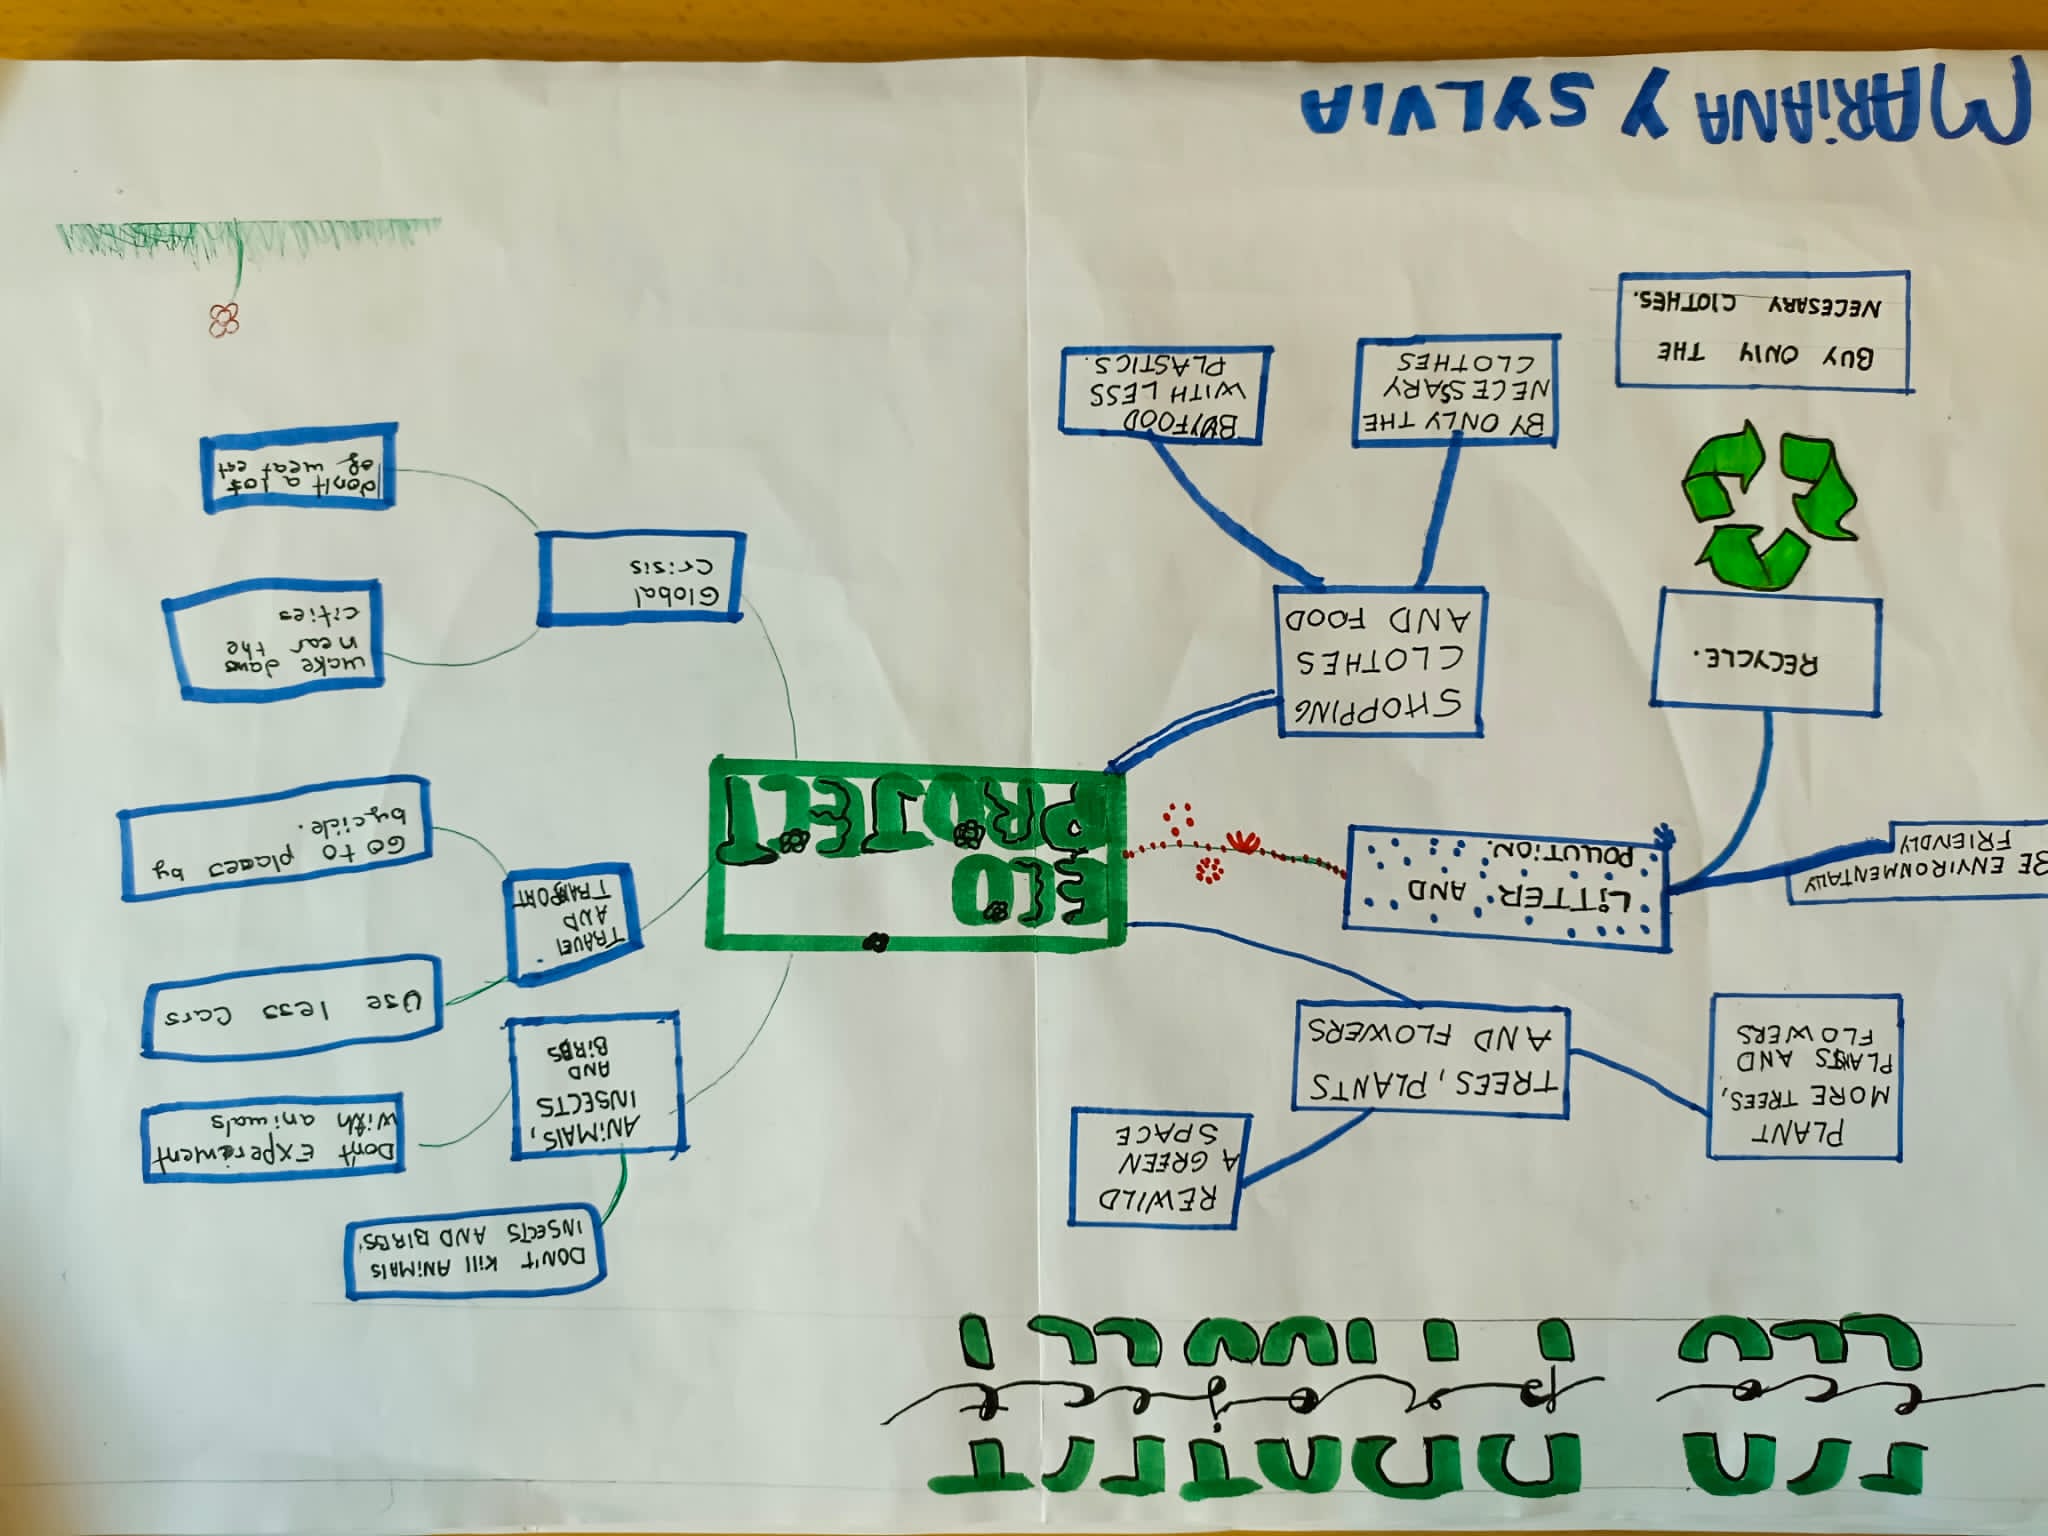 ECO PROJECT
eco project
PLANT
MORE TREES,
PLANTS AND
FLOWERS
REWILD
A GREEN
SPACE
TREES, PLANTS
AND FLOWERS
BE ENVIRONMENTALLY
FRIENDLY
LiTTER AND
POLLUTION.
RECYCLE.
BUY ONlY THE
NECESARY ClOTHES.
SHOPPING
CLOTHES
AND FOOD
BY ONLY THE
NECESSARY
CLOTHES
BUY FOOD
WITH LESS
PLASTICS.
ECO
PROJECT
DON'T Kill ANiMAlS
INSECTS AND BIRBS.
ANiMAlS,
INSECTS
AND
BiRBS
Don't EXPeriment
with animals
TRAVEl
AND
TRANSPORT
Use less Cars
Go to places by
bycicle.
Global
Crisis
make dams
near the
cities
don't a lot
of meat eat
MARiANA Y SYLViA